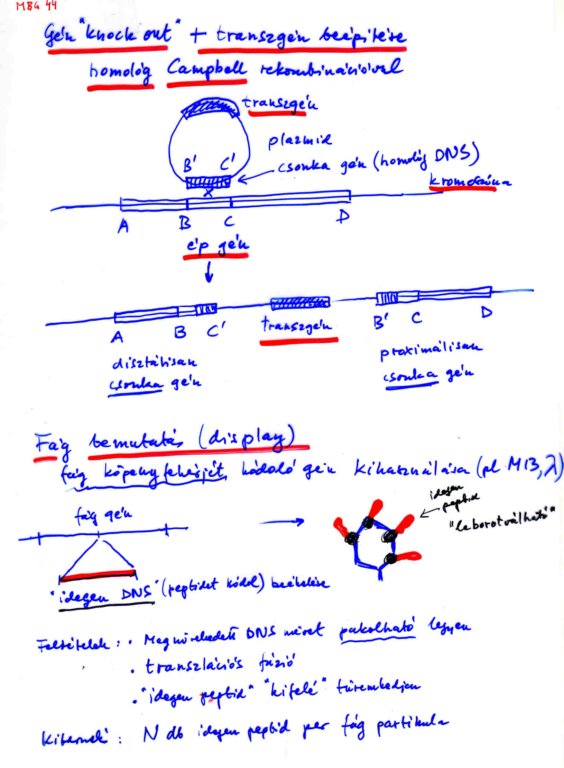 MBG 44
Gén "knock out" + transzgén beépítése
homológ Campbell rekombinációval
transzgén
plazmid
B' C'
csonka gén (homológ DNS)
kromoszóma
x
A B C D
ép gén
A B C' transzgén B' C D
disztálisan
csonka gén
proximálisan
csonka gén
Fág bemutatás (display)
fág köpenyfehérjét kódoló gén kihasználása (pl M13, λ)
fág gén
idegen
peptid
"leborotválható"
"idegen DNS" (peptidet kódol) beékelése
Feltételek: • Megnövekedett DNS méret pakolható legyen
• transzlációs fúzió
• "idegen peptid" "kifelé" türemkedjen
Kitermelés: N db idegen peptid per fág partikula